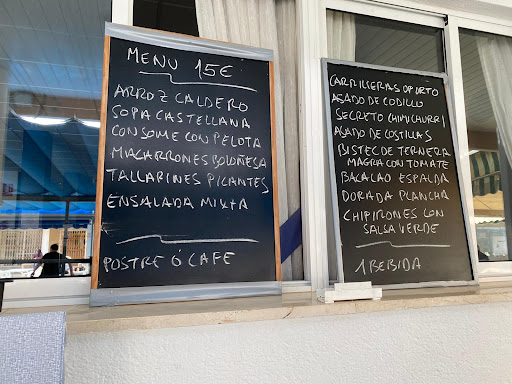 MENU 15€
ARROZ CALDERO
SOPA CASTELLANA
CONSOME CON PELOTA
MACARRONES BOLOÑESA
TALLARINES PICANTES
ENSALADA MIXTA
POSTRE Ó CAFE
CARRILLERAS OPORTO
ASADO DE CODILLO
SECRETO CHIMICHURRI
ASADO DE COSTILLAS
BISTEC DE TERNERA
MAGRA CON TOMATE
BACALAO ESPALDA
DORADA PLANCHA
CHIPIRONES CON
SALSA VERDE
1 BEBIDA